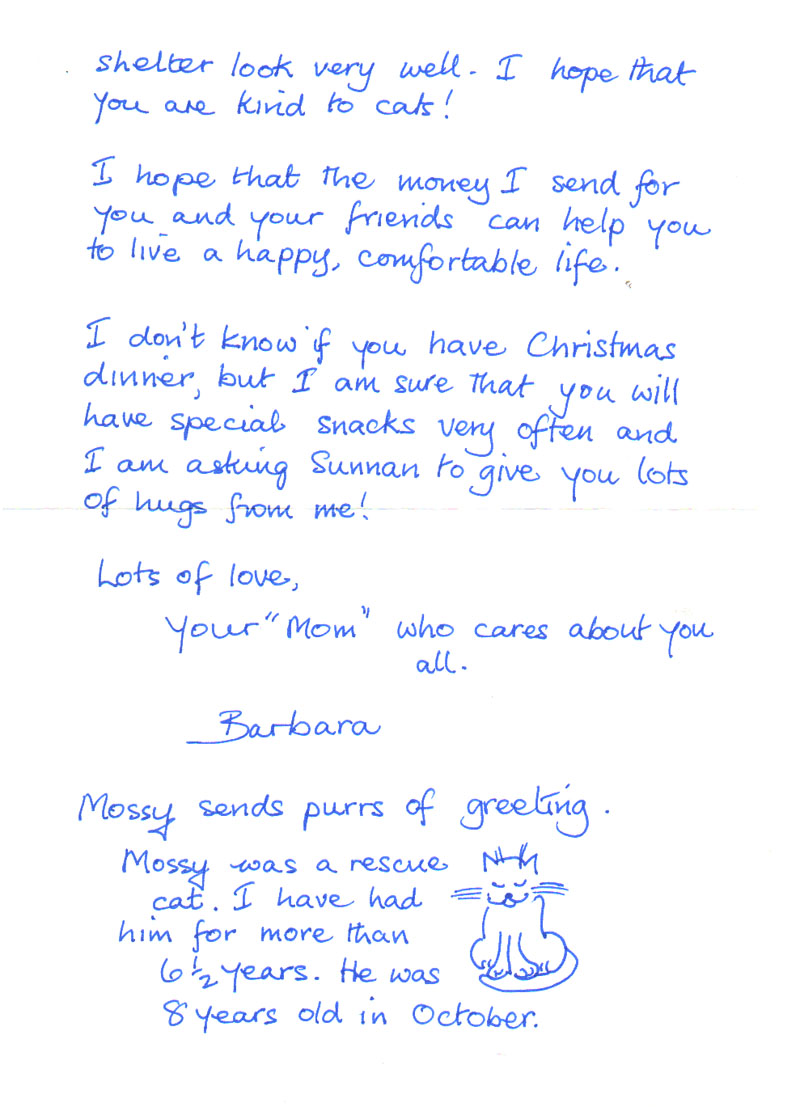 shelter look very well. I hope that
you are kind to cats!
I hope that the money I send for
you and your friends can help you
to live a happy, comfortable life.
I don't know if you have Christmas
dinner, but I am sure that you will
have special snacks very often and
I am asking Sunnan to give you lots
of hugs from me!
Lots of love,
Your "Mom" who cares about you
all.
Barbara
Mossy sends purrs of greeting.
Mossy was a rescue
cat. I have had
him for more than
6 1/2 years. He was
8 years old in October.